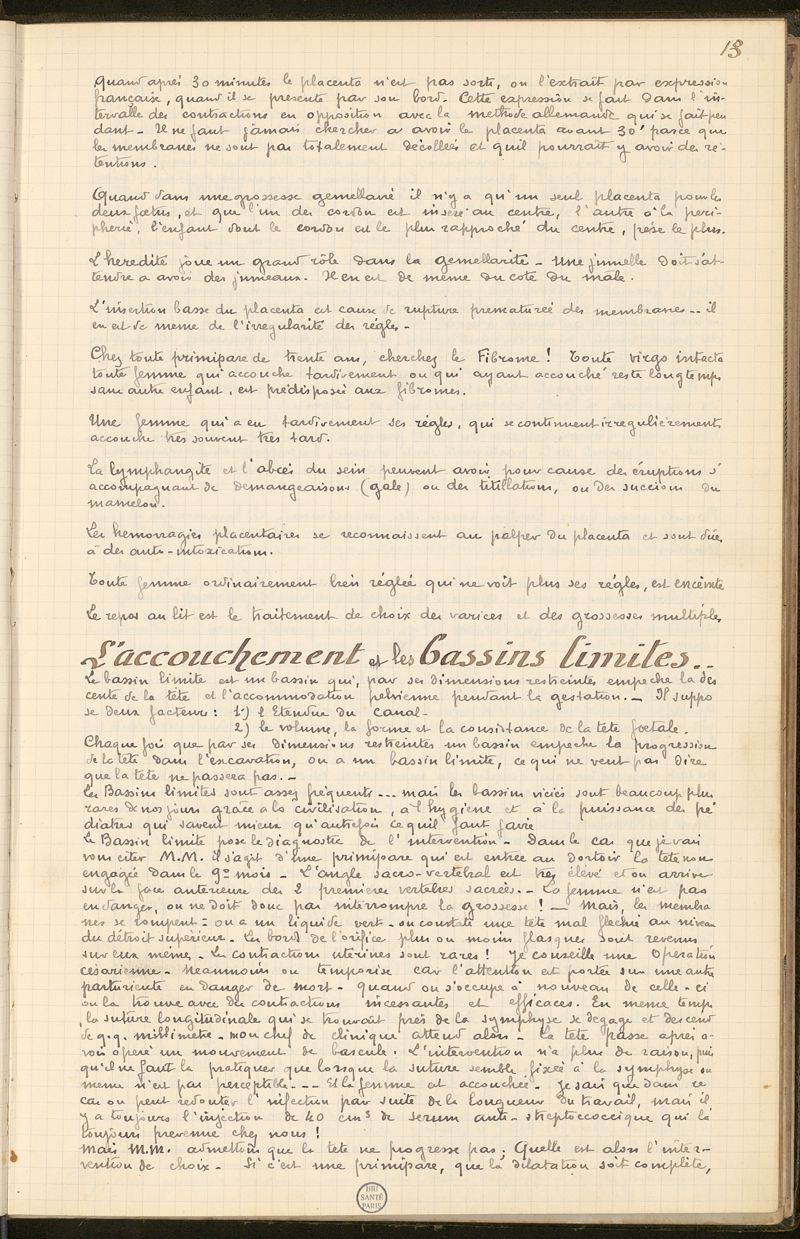 13
Quand après 30 minutes le placenta n'est pas sorti, on l'extrait par expression
française, quand il se presente par son bord. Cette expression se fait dans l'in-
tervalle des contractions en opposition avec la methode allemande qui se fait pen
dant - Il ne faut jamais chercher a avoir le placenta avant 30' parce que
les membranes ne sont pas totalement decollées et qu'il pourrait y avoir des re-
tentions.
Quand dans une grossesse gemellaire il n'y a qu'un seul placenta pour les
deux fœtus, et que l'un des cordon est inséré au centre, l'autre à la peri-
pherie, l'enfant dont le cordon est le plus rapproché du centre, pèse le plus.
L'heredité joue un grand rôle dans la gemellarité - Une jumelle doit s'at-
tendre a avoir des jumeaux. Il en est de même du coté du mâle.
L'insertion basse du placenta est cause de rupture prematurée des membranes -- il
en est de meme de l'irregularité des règles -
Chez toute primipare de trente ans, cherchez le Fibrome! Toute virgo intacta
toute femme qui accouche tardivement ou qui ayant accouché reste longtemps
sans autre enfant, est prédisposée aux fibromes.
Une femme qui a eu tardivement ses règles, qui se continuent irregulièrement,
accouche très souvent très tard.
La lymphangite et l'abcès du sein peuvent avoir pour cause des éruptions s'
accompagnant de demangeaisons (gale) ou des titillations, ou des succions du
mamelon.
Les hemorragies placentaires se reconnaissent au palper du placenta et sont dues
à des auto-intoxications.
Toute femme ordinairement bien réglée qui ne voit plus ses règles, est enceinte
Le repos au lit est le traitement de choix des varices et des grossesses multiples
L'accouchement et les Bassins limites..
Le bassin limite est un bassin qui, par ses dimensions restreintes empeche la des
cente de la tête et l'accommodation pelvienne pendant la gestation. - Il suppo
se deux facteurs: 1º) l'Etendue du Canal -
2) le volume, la forme et la consistance de la tête fœtale.
Chaque fois que par ses dimensions restreintes un bassin empeche la progression
de la tête dans l'excavation, on a un bassin limite, ce qui ne veut pas dire
que la tête ne passera pas. -
Les Bassins limites sont assez fréquents --- mais les bassins viciés sont beaucoup plus
rares de nos jours grâce a la civilisation, à l'hygiene et à la puissance des pé
diatres qui savent mieux qu'autrefois ce qu'il faut faire
Le Bassin limite pose le diagnostic de l'intervention - Dans le cas que je vais
vous citer M.M. il s'agit d'une primipare qui est entrée au dortoir la tête non
engagée dans le 9º mois - L'angle sacro-vertebral est très élevé et on arrive
sur la face anterieure des 2 premieres vertebres sacrées - La femme n'est pas
en danger, on ne doit donc pas interrompre la grossesse! - Mais, les membra
nes se rompent: on a un liquide vert - on constate une tête mal flechie au niveau
du détroit supérieur - Les bords de l'orifice plus ou moins flasques sont revenus
sur eux mêmes - Les contractions utérines sont rares! Je conseille une Opération
césarienne - Neanmoins on temporise car l'attention est portée sur une autre
parturiente en danger de mort - quand on s'occupe à nouveau de celle-ci
on la trouve avec des contractions incessantes et efficaces. En meme temps
la suture longitudinale qui se trouvait près de la symphyse se degage et descend
de q.q. millimètre - mon chef de clinique attend alors - La tête passe après a-
voir opéré un mouvement de bascule. L'intervention n'a plus de raison, puis
qu'il ne faut la pratiquer que lorsque la suture semble fixée à la symphyse ou
meme n'est pas perceptible --- Et la femme est accouchée. Je sais que dans ce
cas on peut redouter l'infection par suite de la longueur du travail, mais il
y a toujours l'injection de 40 cm³ de serum anti-streptococcique qui l'a
toujours prevenue chez nous!
Mais M.M. admettons que la tête ne progresse pas; Quelle est alors l'inter-
vention de choix - Si c'est une primipare, que la dilatation soit complète,
BIU
SANTÉ
PARIS